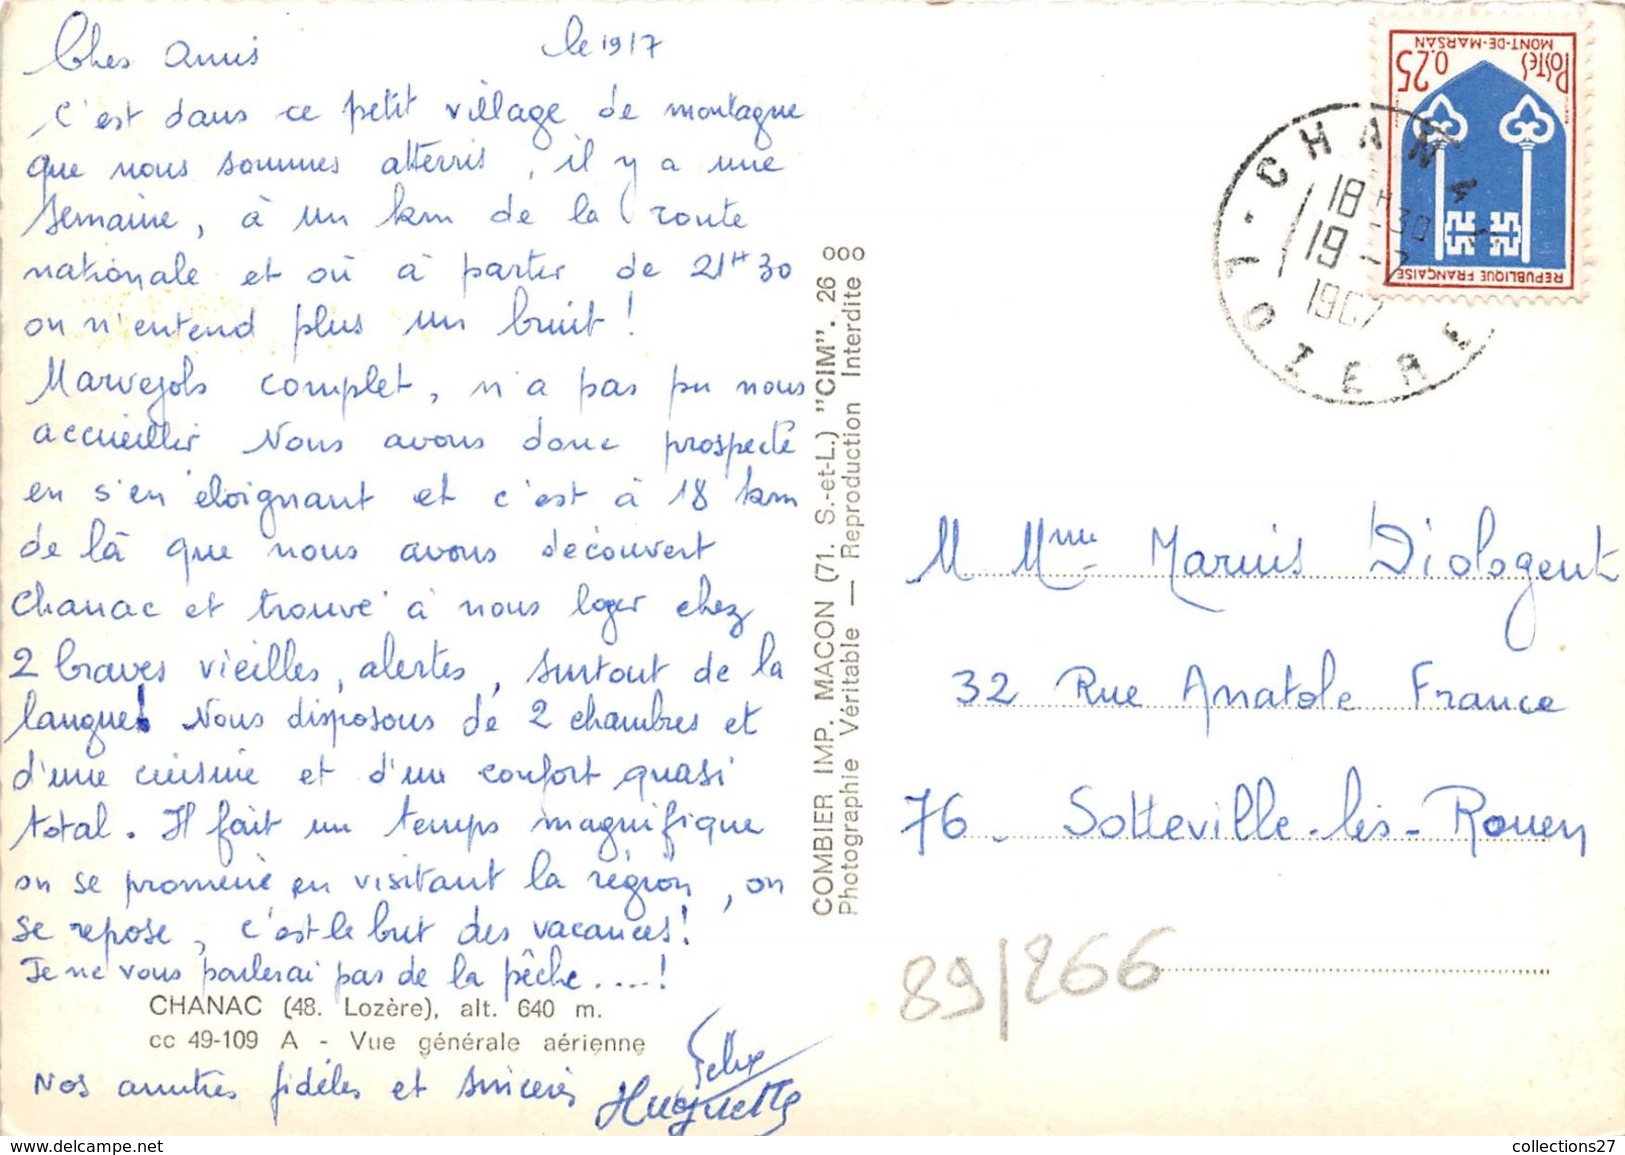 Chers Amis le 19/7
C'est dans ce petit village de montagne
que nous sommes atterris, il y a une
semaine, à un km de la route
nationale et où à partir de 21H30
on n'entend plus un bruit !
Marvejols complet, n'a pas pu nous
accueillir Nous avons donc prospecté
en s'en éloignant et c'est à 18 km
de là que nous avons découvert
Chanac et trouvé à nous loger chez
2 braves vieilles, alertes, surtout de la
langue! Nous disposons de 2 chambres et
d'une cuisine et d'un confort quasi
total. Il fait un temps magnifique
on se promène en visitant la région, on
se repose, c'est le but des vacances!
Je ne vous parlerai pas de la pêche ....!
CHANAC (48. Lozère), alt. 640 m.
cc 49-109 A - Vue générale aérienne
Nos amitiés fidèles et sincères
Felix
Huguette
COMBIER IMP. MACON (71. S.-et-L.) "CIM". 26 000
Photographie Véritable — Reproduction Interdite
POSTES 0,25
MONT-DE-MARSAN
REPUBLIQUE FRANÇAISE
CHANAC
18H-30
19-7
1967
LOZERE
M Mme Marius Diologent
32 Rue Anatole France
76. Sotteville-lès-Rouen
89/266
collections27